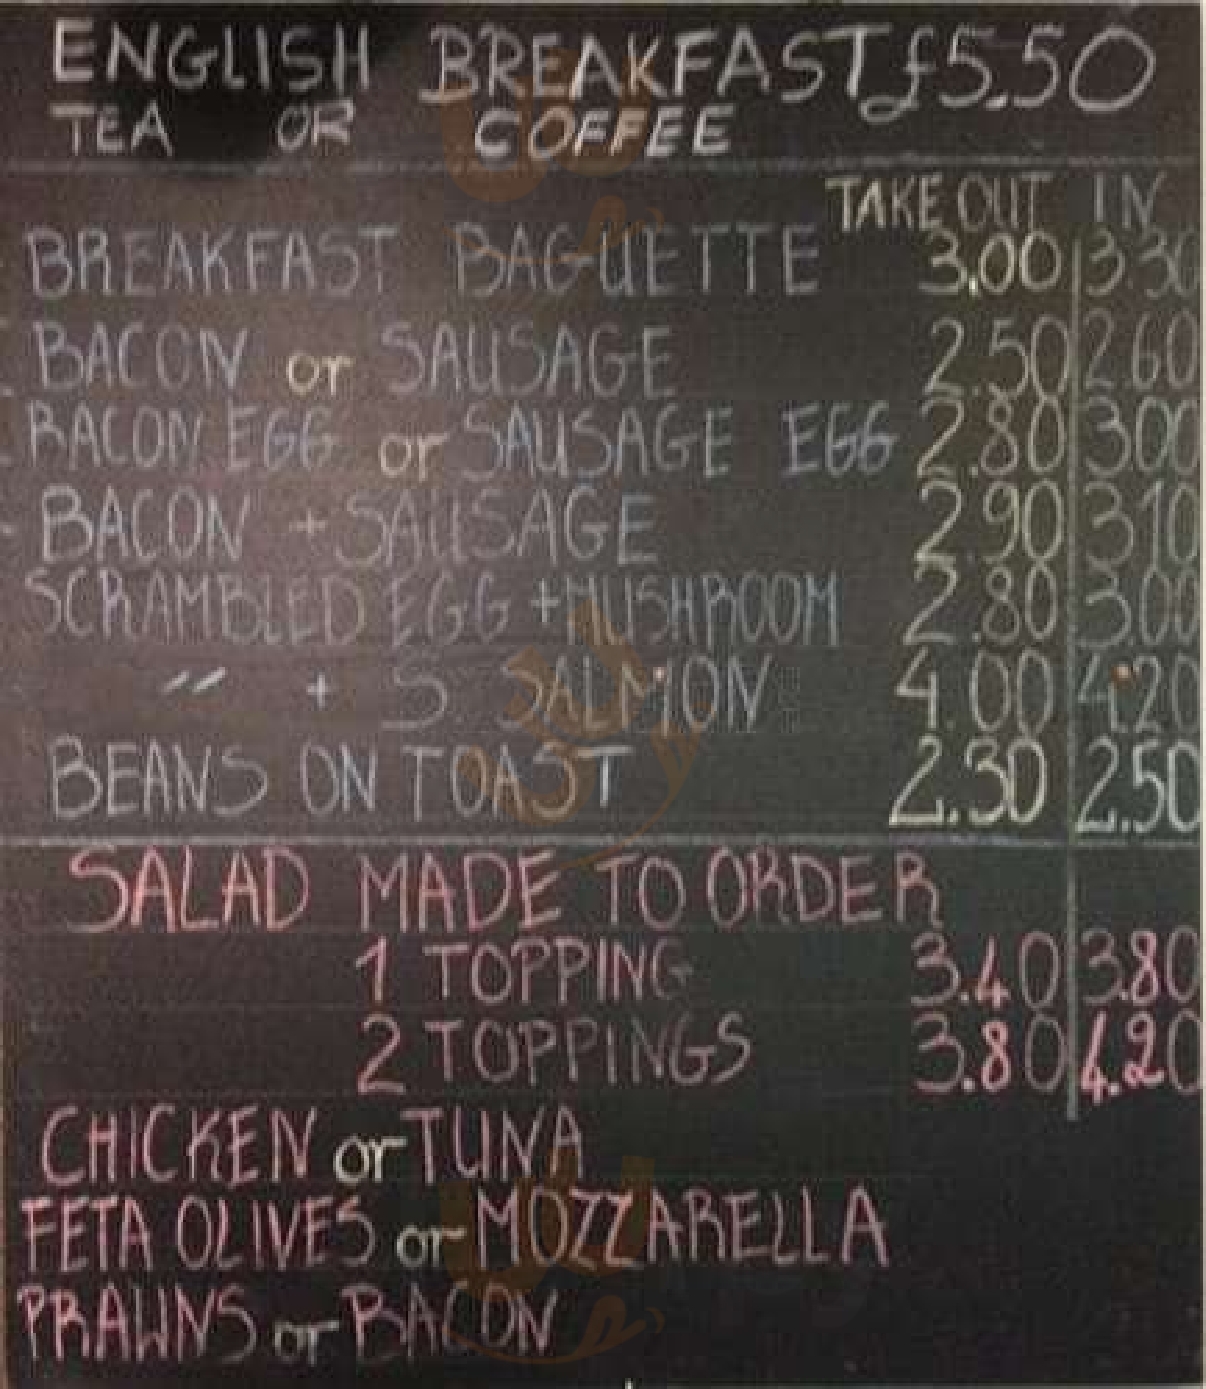 ENGLISH BREAKFAST £5.50
TEA OR COFFEE
TAKE OUT IN
BREAKFAST BAGUETTE 3.00 3.30
BACON or SAUSAGE 2.50 2.60
BACON EGG or SAUSAGE EGG 2.80 3.00
BACON + SAUSAGE 2.90 3.10
SCRAMBLED EGG + MUSHROOM 2.80 3.00
〃 + S. SALMON 4.00 4.20
BEANS ON TOAST 2.30 2.50
SALAD MADE TO ORDER
1 TOPPING 3.40 3.80
2 TOPPINGS 3.80 4.20
CHICKEN or TUNA
FETA OLIVES or MOZZARELLA
PRAWNS or BACON